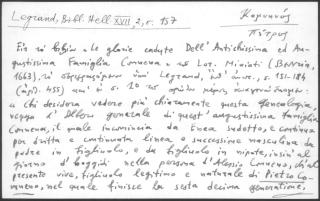 Legrand, Bibl. Hell. XVII, 2, σ. 157
Κομνηνός
Πέτρος
Εἰς τὸ βιβλίον «Le glorie cadute Dell' Antichissima ed Au-
gustissima Famiglia Comnena» τοῦ Lor. Miniati (Βενετία,
1663), Legrand, σ. 151-184
(ἀριθ. 455) σ. 20
a chi desidera vedere più chiaramente questa Genealogia,
vegga l'Albero generale di quest'augustissima famiglia
Comnena, il quale incomincia da Enea sudetto, e continua
per dritta e continuata linea e successione masculina da
padre in figliuolo, e da figliuolo in nipote, insin'al
giorno d'hoggidì nella persona d'Alessio Comneno, ch'al
presente vive, figliuolo legitimo e naturale di Pietro Co-
mneno, nel quale finisce la sesta decima generatione.